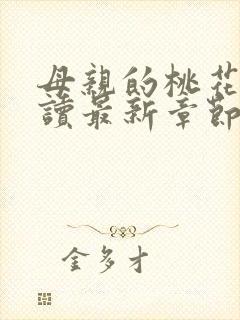 母親的桃花
讀最新章節
金多才